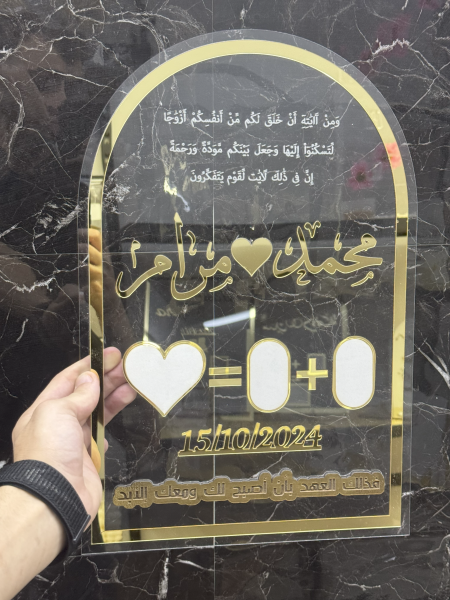 وَمِنْ آيَٰتِهِ أَنْ خَلَقَ لَكُم مِّنْ أَنفُسِكُمْ أَزْوَٰجًا
لِّتَسْكُنُوٓا۟ إِلَيْهَا وَجَعَلَ بَيْنَكُم مَّوَدَّةً وَرَحْمَةً
إِنَّ فِى ذَٰلِكَ لَءَايَٰتٍ لِّقَوْمٍ يَتَفَكَّرُونَ
محمد مرام
0 + 0 =
15/10/2024
فذلك العهد بأن أصبح لك ومعك للأبد